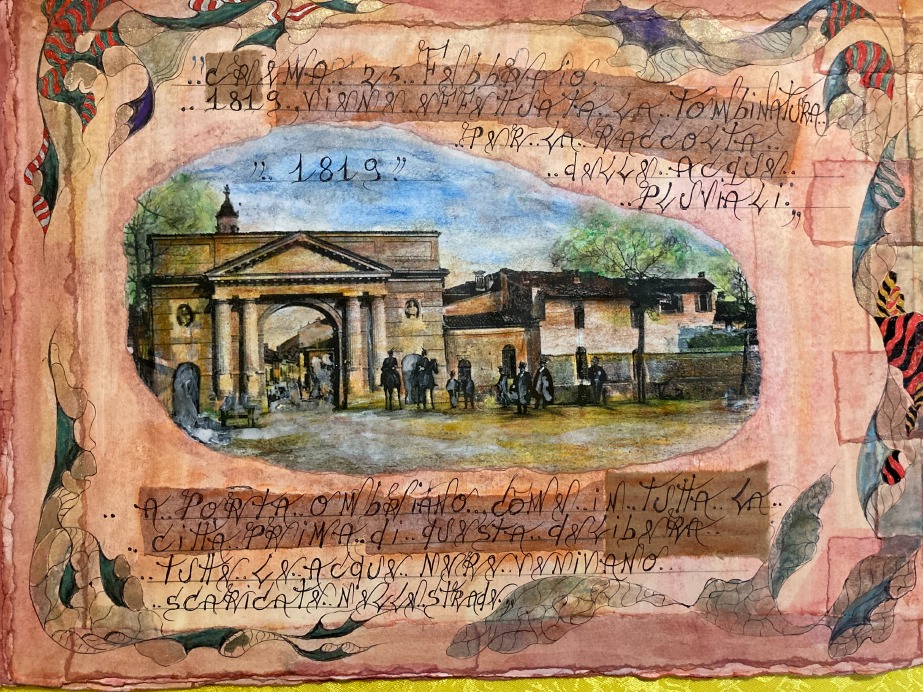 "CREMA.. 25.. Febbraio
..1819..VIENE EFFETTUATA..LA..TOMBINATURA..
..PER..LA RACCOLTA..
..dELLE..ACQUE..
..PLUVIALI.."
".. 1819.."
.. A PORTA OMBRIANO..COME..iN TUTTA LA..
..CITTÀ PRIMA..di..QUESTA..dELIBERA
..TUTTE..LE..ACQUE..NERE VENIVANO..
..SCARICATE..NELLE STRADE.."